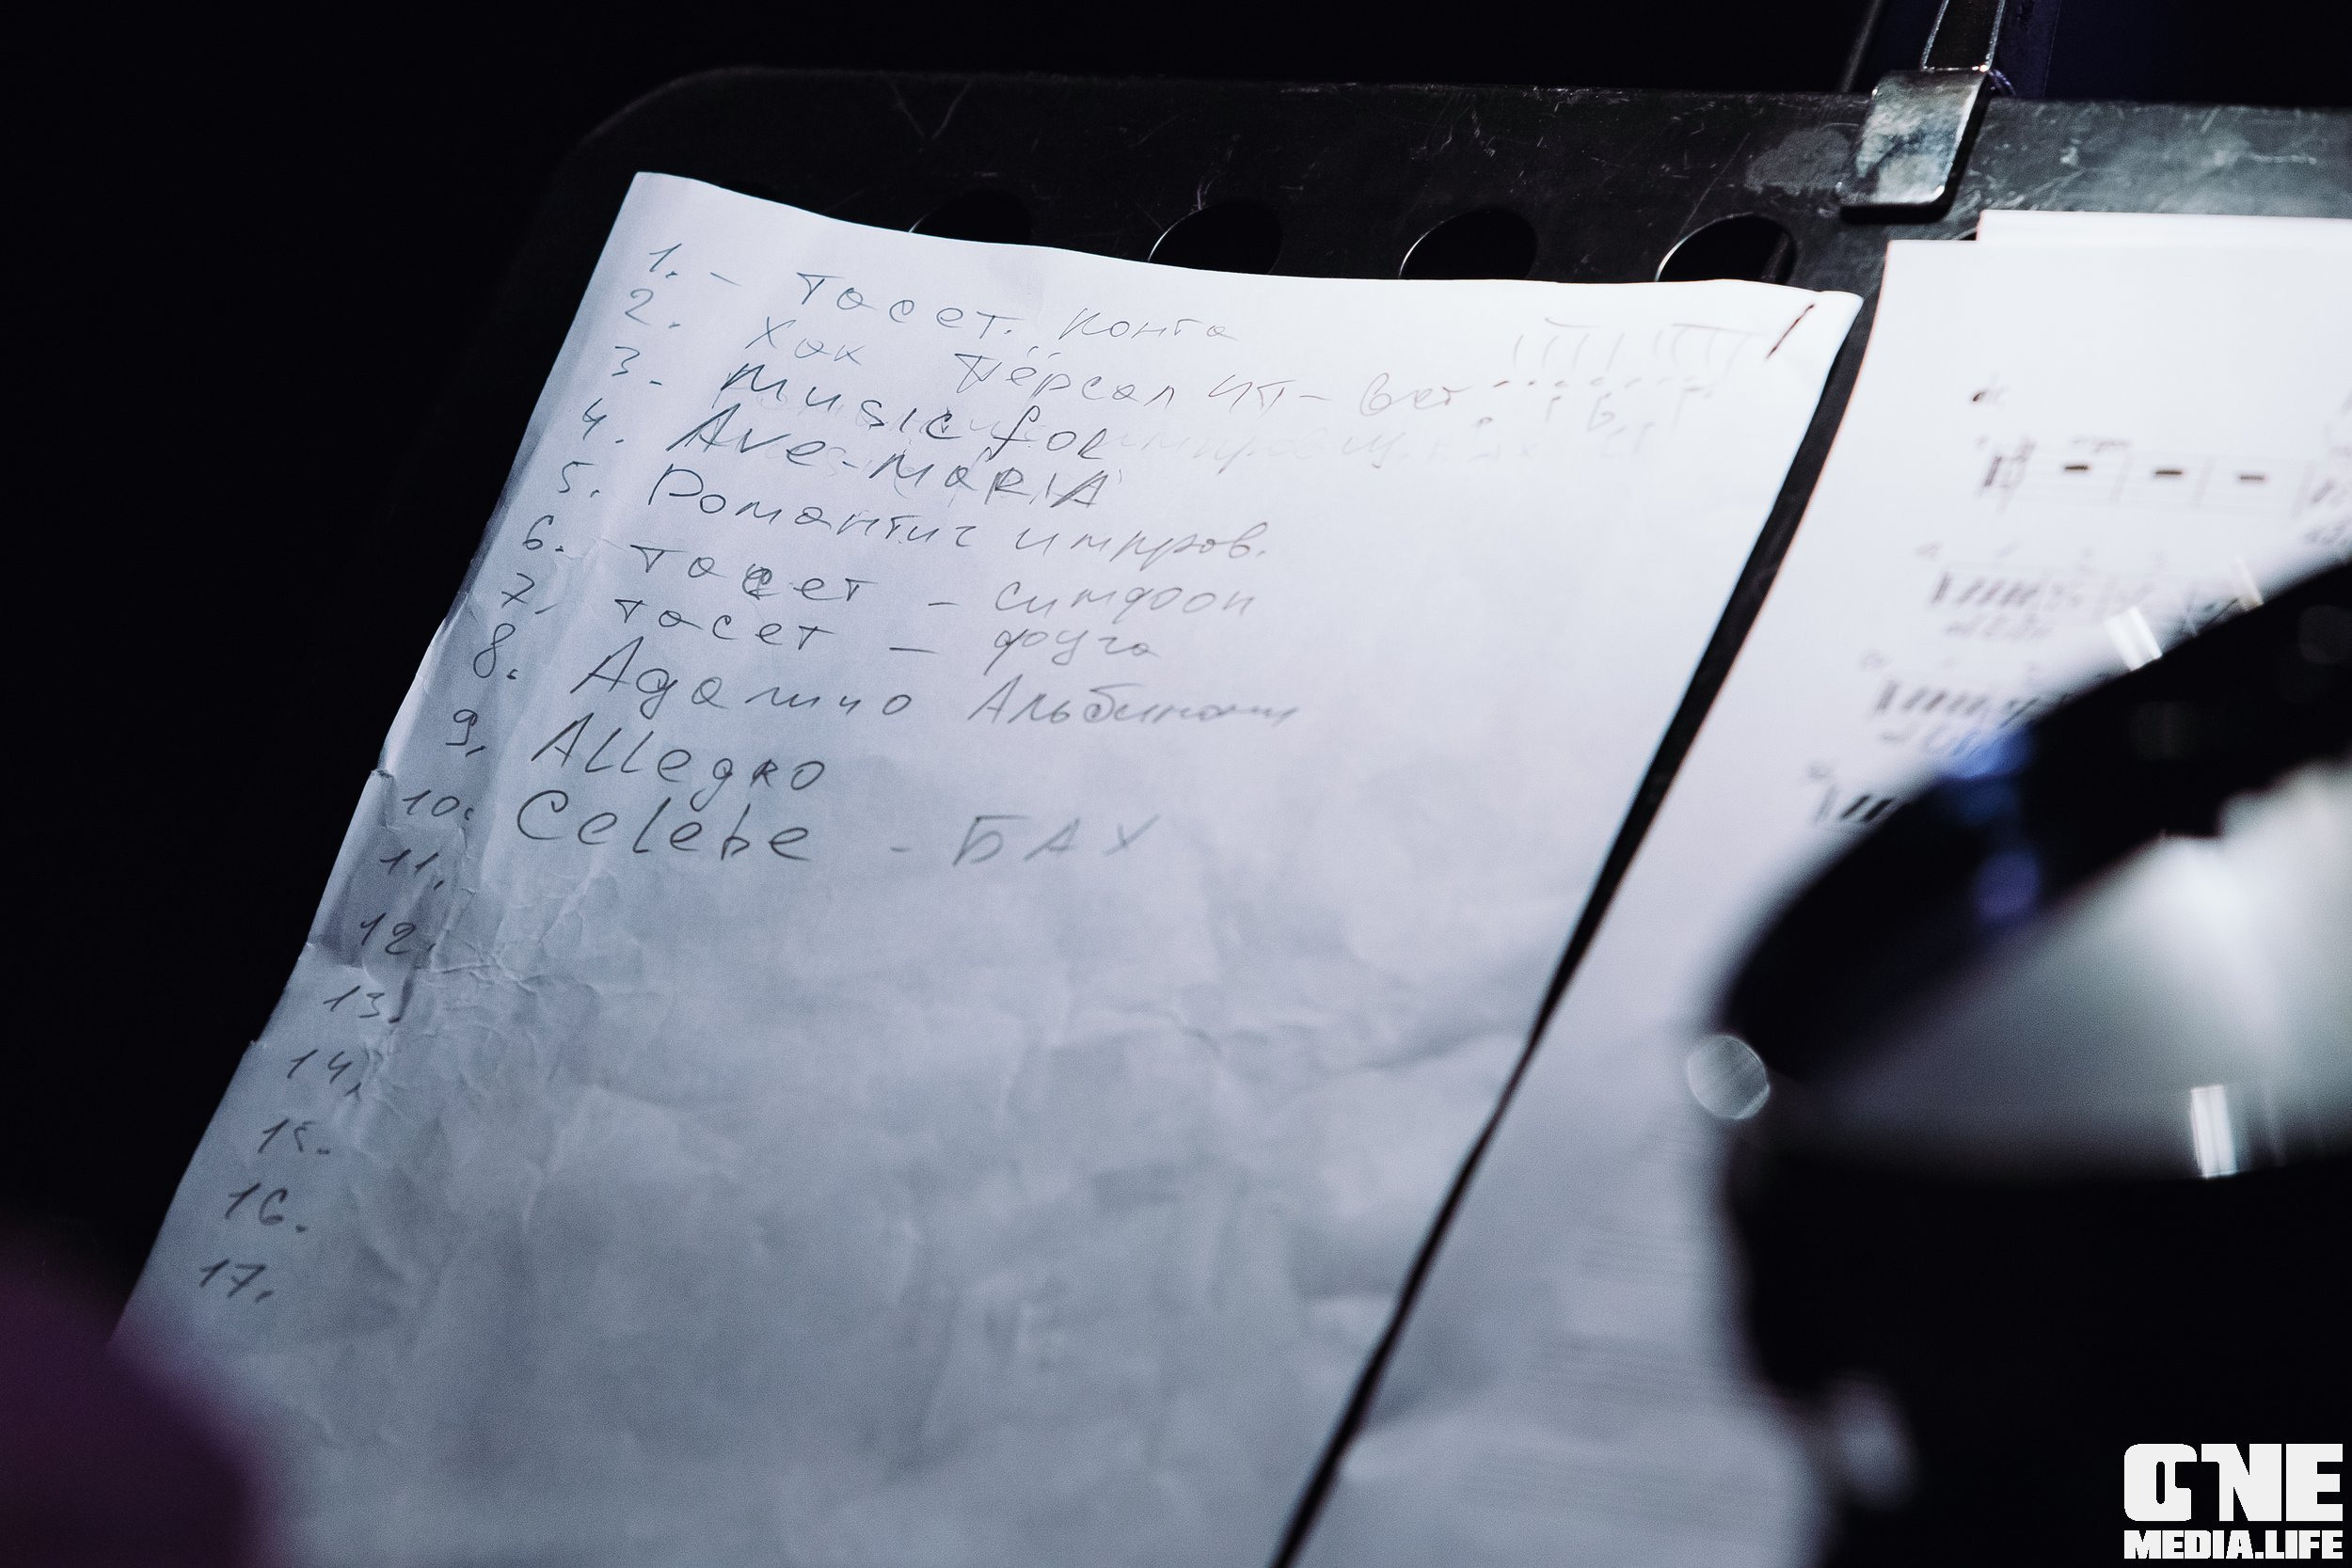 1. - Тосет. конта
2. Хак Пёрсел ип- вет
3. Music for
4. Ave-MaRIA
5. Романтич импров.
6. тосет - симфон
7. тосет - фуга
8. Адажио Альбинони
9. Allegro
10. Celebe - БАХ
11.
12.
13.
14.
15.
16.
17.
ONE
MEDIA.LIFE